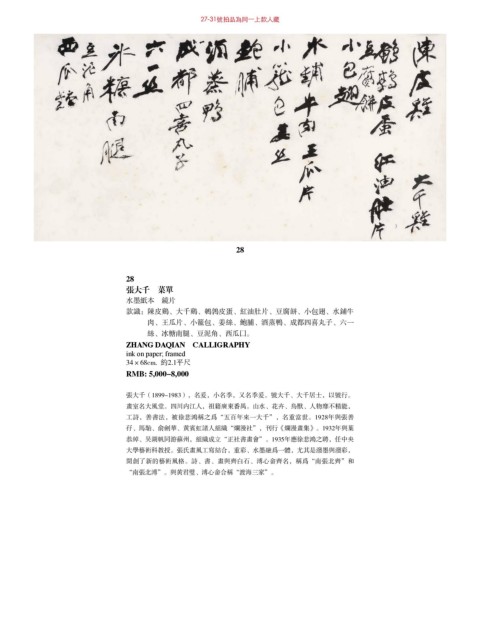 27-31號拍品為同一上款人藏
陳皮雞 大千雞
鵪鶉皮蛋 紅油肚片
豆腐餅
小包翅
水鋪牛肉王瓜片
小籠包 姜丝
鲍脯
酒蒸鸭
成都四喜丸子
六一丝
冰糖南腿
豆泥角
西瓜盅
28
28
張大千 菜單
水墨紙本 鏡片
款識：陳皮鷄、大千鷄、鵪鶉皮蛋、紅油肚片、豆腐餅、小包翅、水鋪牛
肉、王瓜片、小籠包、姜絲、鮑脯、酒蒸鴨、成都四喜丸子、六一
絲、冰糖南腿、豆泥角、西瓜囗。
ZHANG DAQIAN CALLIGRAPHY
ink on paper; framed
34×68cm. 約2.1平尺
RMB: 5,000–8,000
張大千（1899~1983），名爰，小名季，又名季爰。號大千、大千居士，以號行。
畫室名大風堂。四川內江人，祖籍廣東番禺。山水、花卉、鳥獸、人物靡不精能。
工詩，善書法。被徐悲鴻稱之爲“五百年來一大千”，名重當世。1928年與張善
孖、馬駘、俞劍華、黃賓虹諸人組織“爛漫社”，刊行《爛漫畫集》。1932年與葉
恭綽、吳湖帆同游蘇州，組織成立“正社書畫會”。1935年應徐悲鴻之聘，任中央
大學藝術科教授。張氏畫風工寫結合，重彩、水墨融爲一體，尤其是潑墨與潑彩，
開創了新的藝術風格。詩、書、畫與齊白石、溥心畬齊名，稱爲“南張北齊”和
“南張北溥”。與黃君璧、溥心畬合稱“渡海三家”。